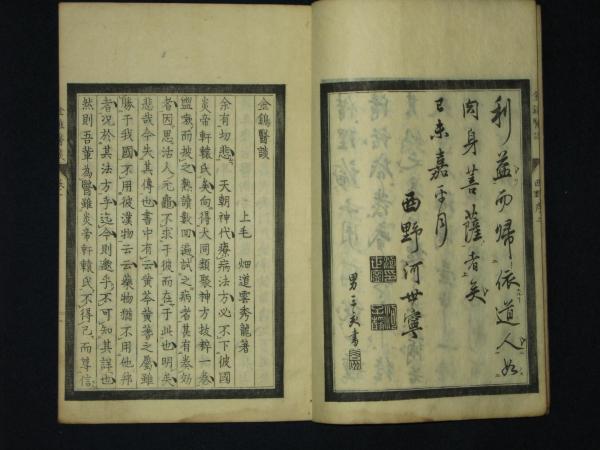 利益而歸依道人如
肉身菩薩者矣
己未嘉平月
西野河世寧
男三亥書
金鷄醫談
上毛 畑道雲秀龍著
余有切悲 天朝神代療病法方必不下彼國
炎帝軒轅氏矣向得大同類聚神方故粹一卷
盥嗽而披之熟讀數回遍試之病者甚有奏効
者因思活人元龜不求于彼而在于此也明矣
悲哉今失其傳也書中有云黄芩黄蓮之屬雖
勝于我國不用彼漢物云云藥物猶不用他邦
者況於其法方乎迄今則邈乎不可知其詳也
然則吾輩為醫雖炎帝軒轅氏不得已而尊信